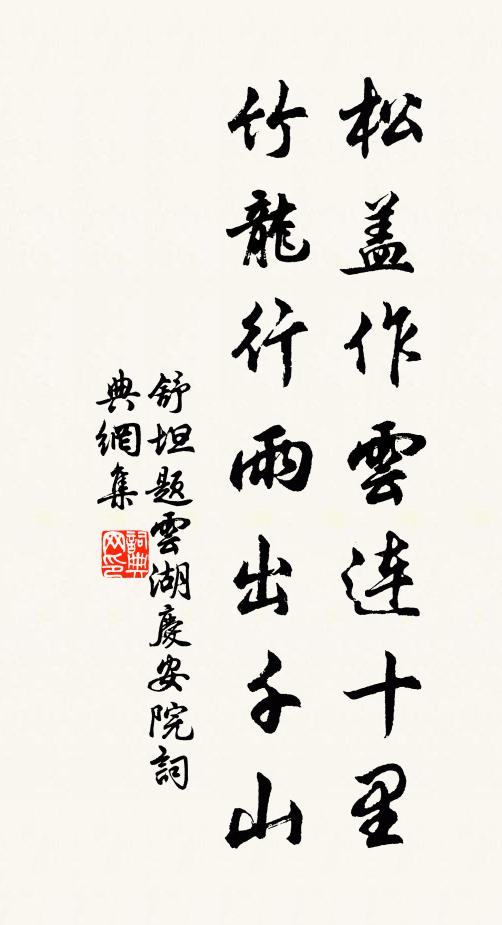 松盖作雲连十里
竹龍行雨出千山
舒坦题雲湖慶安院詞
典網集
詞典网印